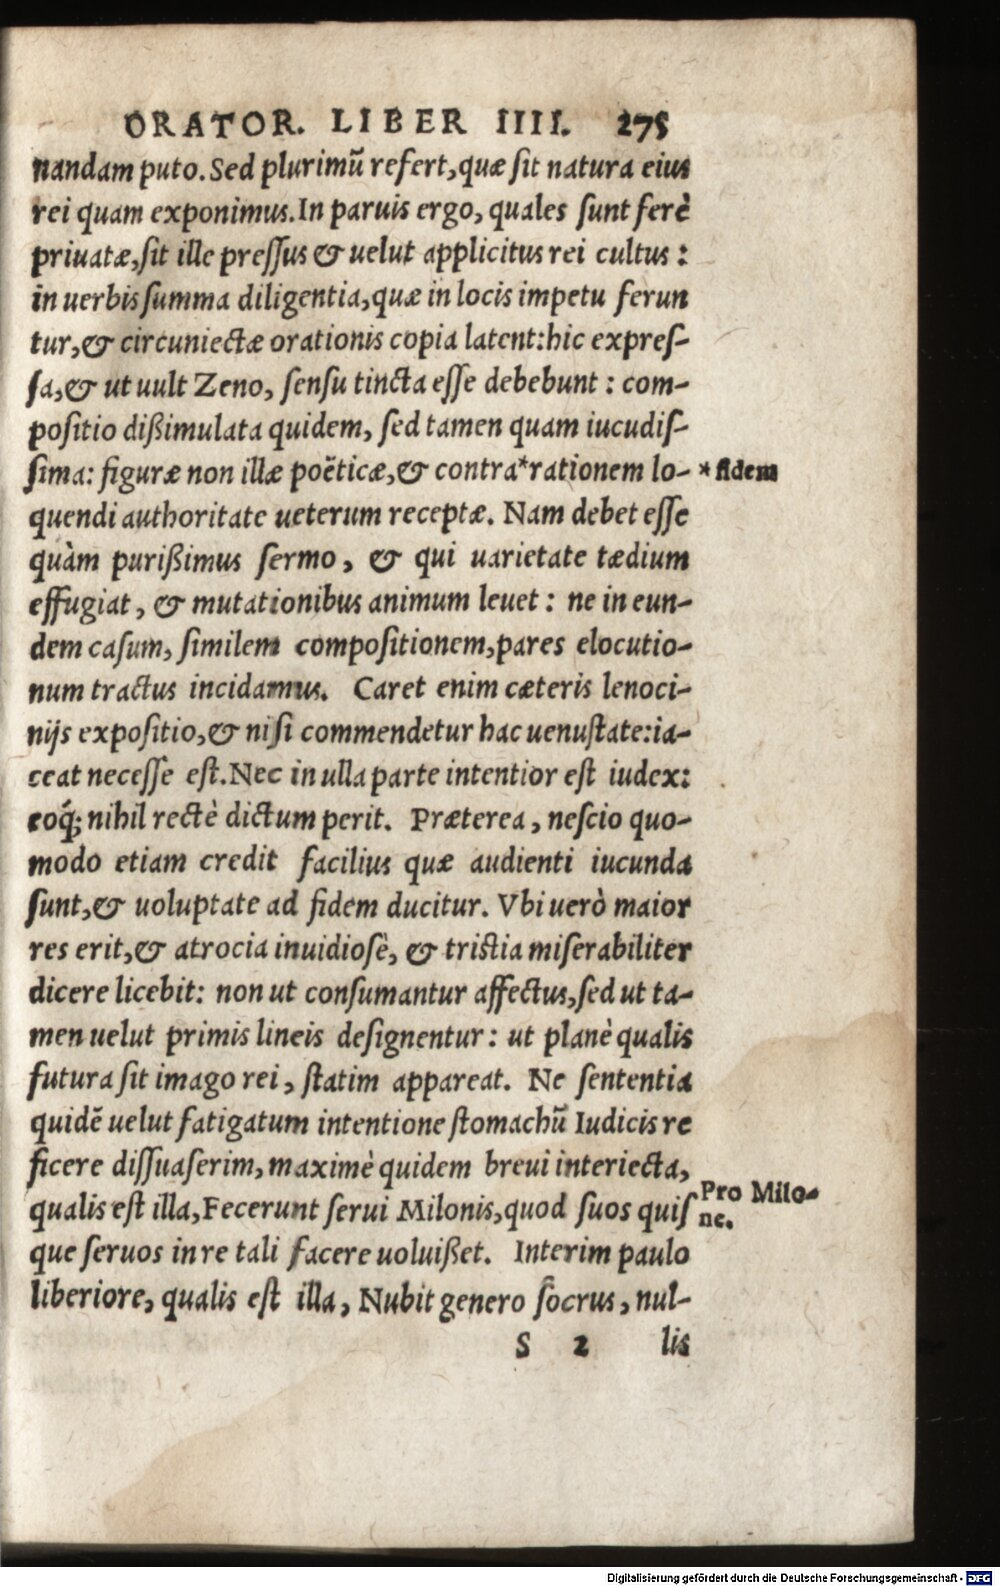 ORATOR. LIBER IIII. 275
nandam puto. Sed plurimū refert, quæ sit natura eius
rei quam exponimus. In paruis ergo, quales sunt ferè
priuatæ, sit ille pressus & uelut applicitus rei cultus:
in uerbis summa diligentia, quæ in locis impetu ferun
tur, & circuniectæ orationis copia latent: hic expres-
sa, & ut uult Zeno, sensu tincta esse debebunt: com-
positio dißimulata quidem, sed tamen quam iucudis-
sima: figuræ non illæ poëticæ, & contra*rationem lo- * fidem
quendi authoritate ueterum receptæ. Nam debet esse
quàm purißimus sermo, & qui uarietate tædium
effugiat, & mutationibus animum leuet: ne in eun-
dem casum, similem compositionem, pares elocutio-
num tractus incidamus. Caret enim cæteris lenoci-
nijs expositio, & nisi commendetur hac uenustate: ia-
ceat necesse est. Nec in ulla parte intentior est iudex:
eoq́; nihil rectè dictum perit. Præterea, nescio quo-
modo etiam credit facilius quæ audienti iucunda
sunt, & uoluptate ad fidem ducitur. Vbi uerò maior
res erit, & atrocia inuidiosè, & tristia miserabiliter
dicere licebit: non ut consumantur affectus, sed ut ta-
men uelut primis lineis designentur: ut planè qualis
futura sit imago rei, statim appareat. Ne sententia
quidē uelut fatigatum intentione stomachū Iudicis re
ficere dissuaserim, maximè quidem breui interiecta,
qualis est illa, Fecerunt serui Milonis, quod suos quis Pro Milo-
ne.
que seruos in re tali facere uolußet. Interim paulo
liberiore, qualis est illa, Nubit genero socrus, nul-
S 2 lis
Digitalisierung gefördert durch die Deutsche Forschungsgemeinschaft - DFG